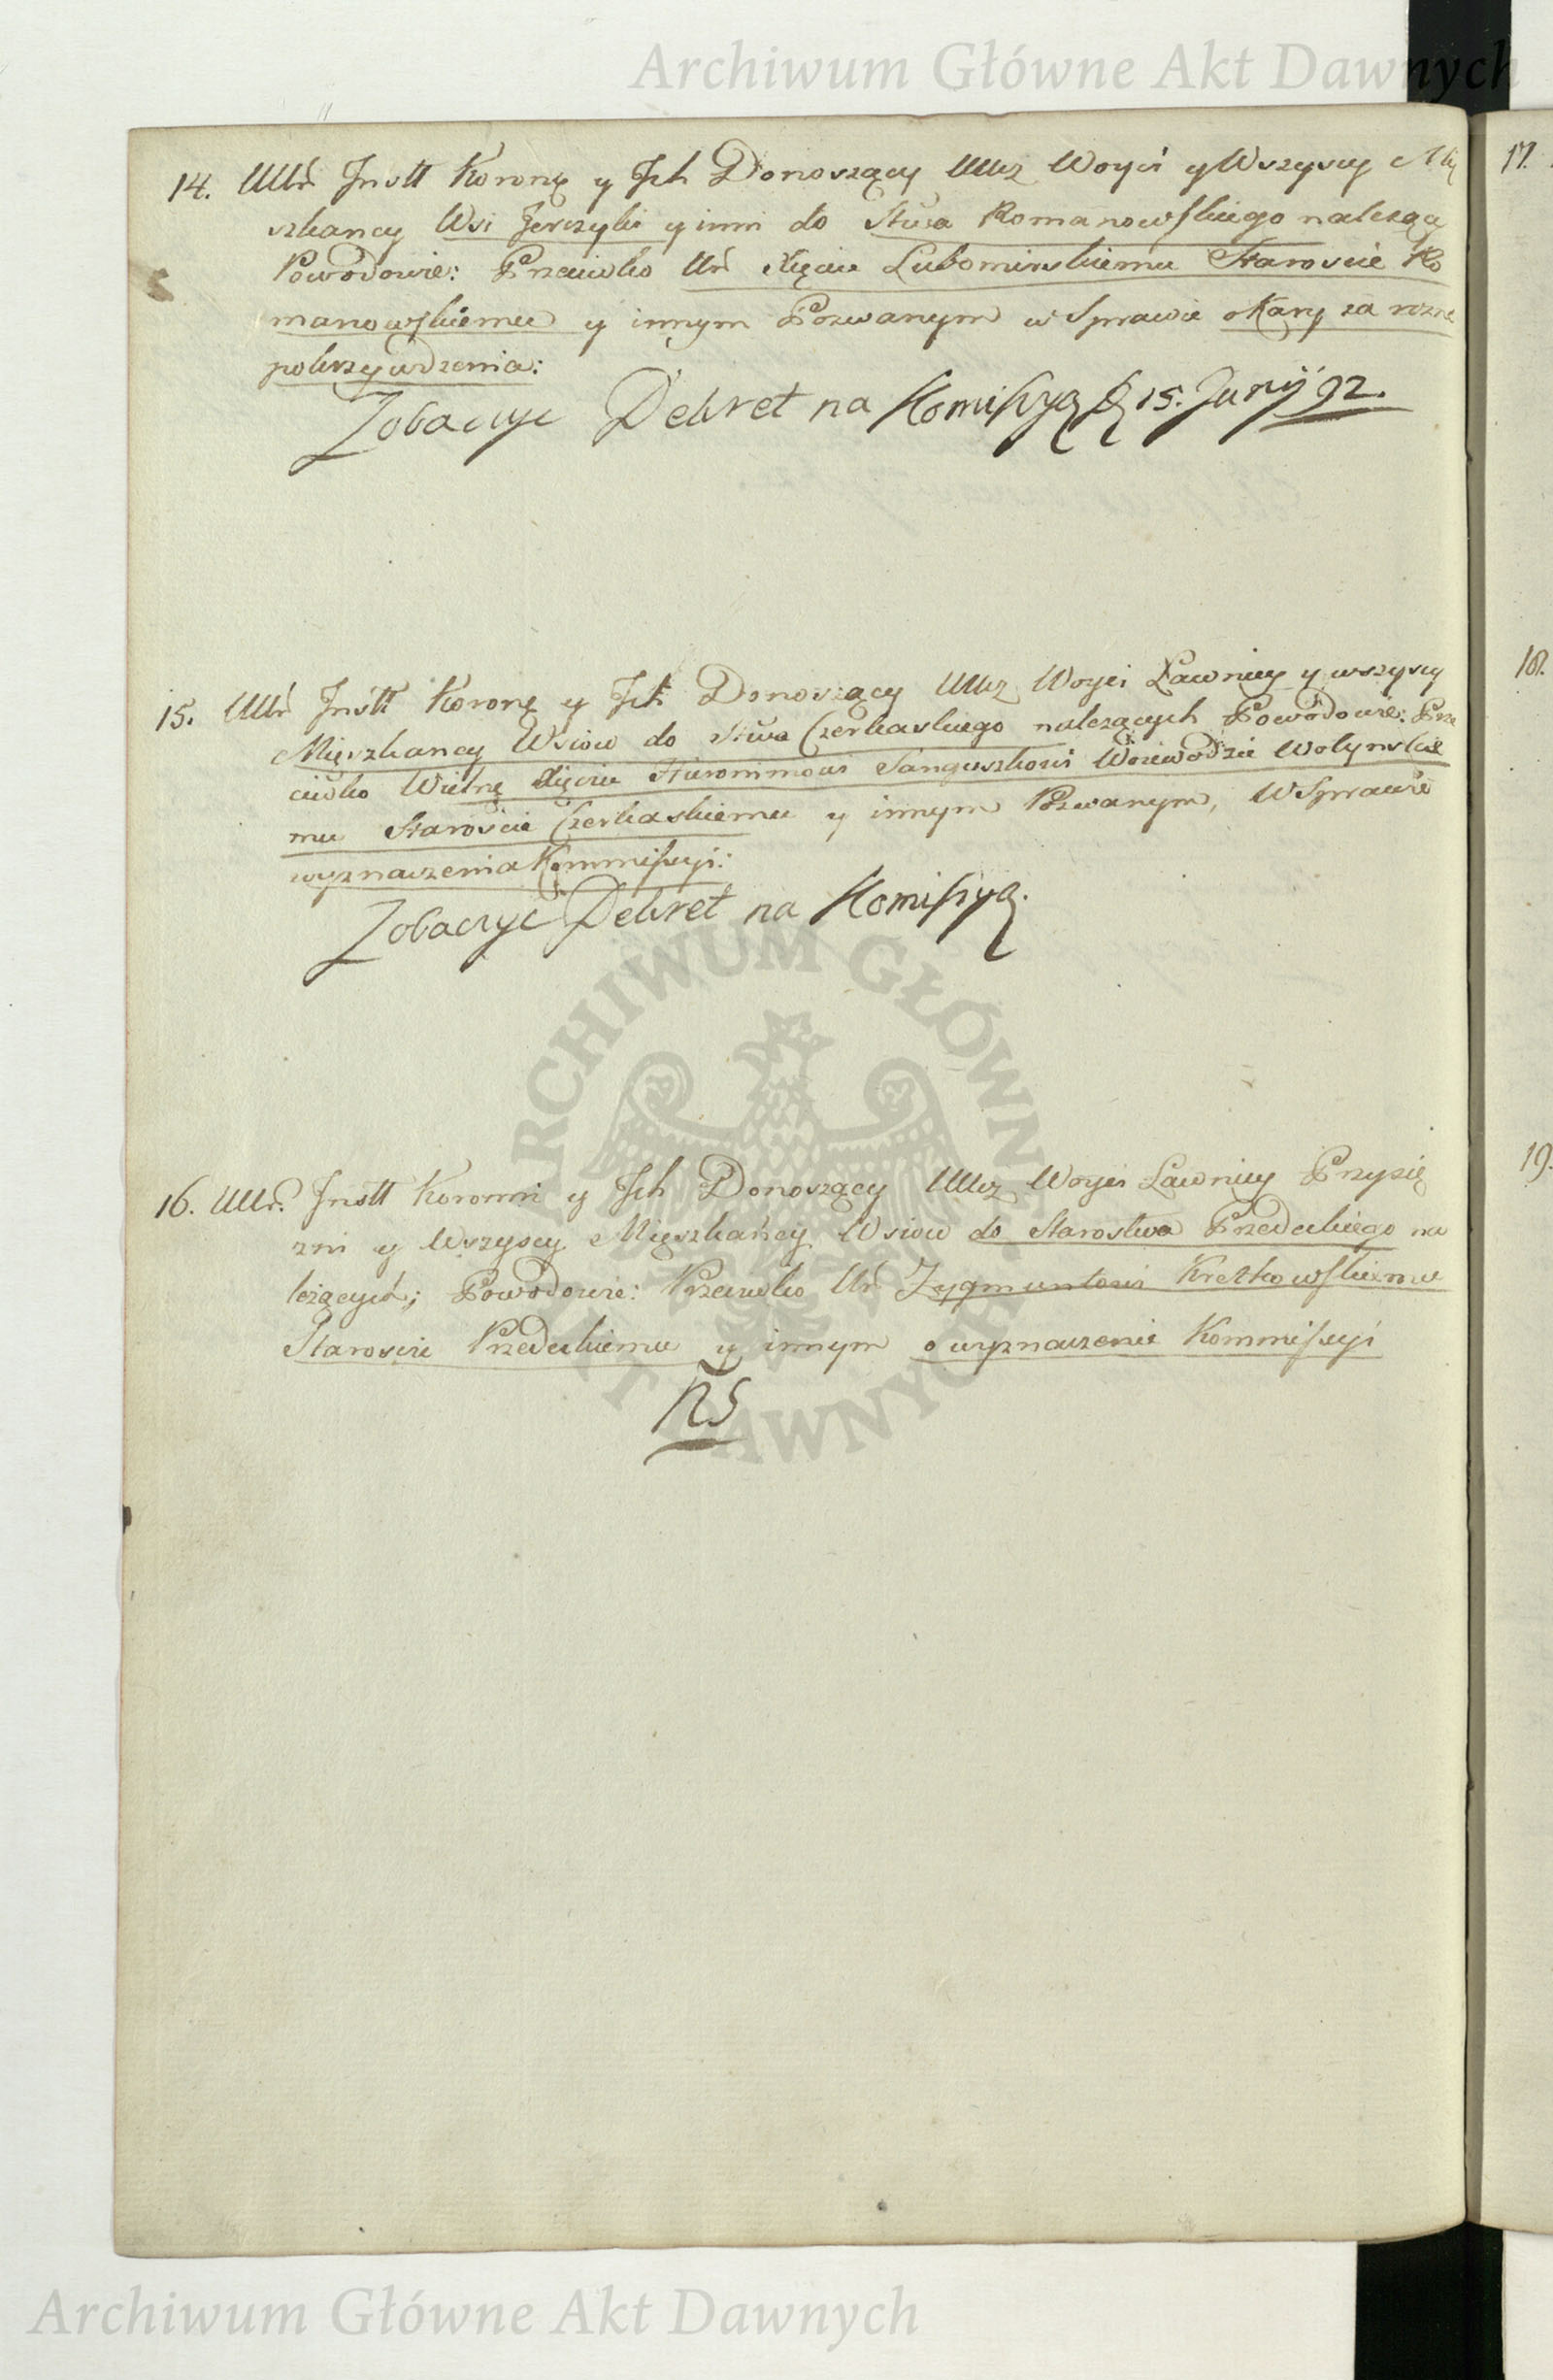 Archiwum Główne Akt Dawnych
14. UUr Instt Koronę y Ich Donoszący UUcz Woyci y Wszyscy Mię
szkancy Wsi Jerczyki y inni do Stwa Romanowskiego należący
Powodowie: Przeciwko Ur Xięciu Lubomirskiemu Staroście Ro
manowskiemu y innym Pozwanym w Sprawie o Karę za rozne
pokrzywdzenia:
Zobaczyc Dekret na Komissyą D 15. Junÿ 92.
15. UUr Instt Koronę y Ich Donoszący UUcz Woyci Ławnicy y wszyscy
Mięszkancy Wsiow do Stwa Czerkaskiego należących Powodowie: Prze
ciwko Wielnę Xięciu Hieronimowi Sanguszkowi Woiewodzie Wołynskie
mu Staroście Czerkaskiemu y innym Pozwanym, W Sprawie
wyznaczenia Kommissyi:
Zobaczyć Dekret na Komissyą.
ARCHIWUM GŁÓWNE AKT DAWNYCH
16. UUr. Instt Koronni y Ich Donoszący UUcz Woyci Ławnicy Przysię
zni y Wszyscy Mięszkańcy Wsiow do Starostwa Przedeckiego na
leżących; Powodowie: Przeciwko Ur Zygmuntowi Kretkowskiemu
Staroscie Przedeckiemu y innym o wyznaczenie Kommissyi
NS
17.
18.
19.
Archiwum Główne Akt Dawnych